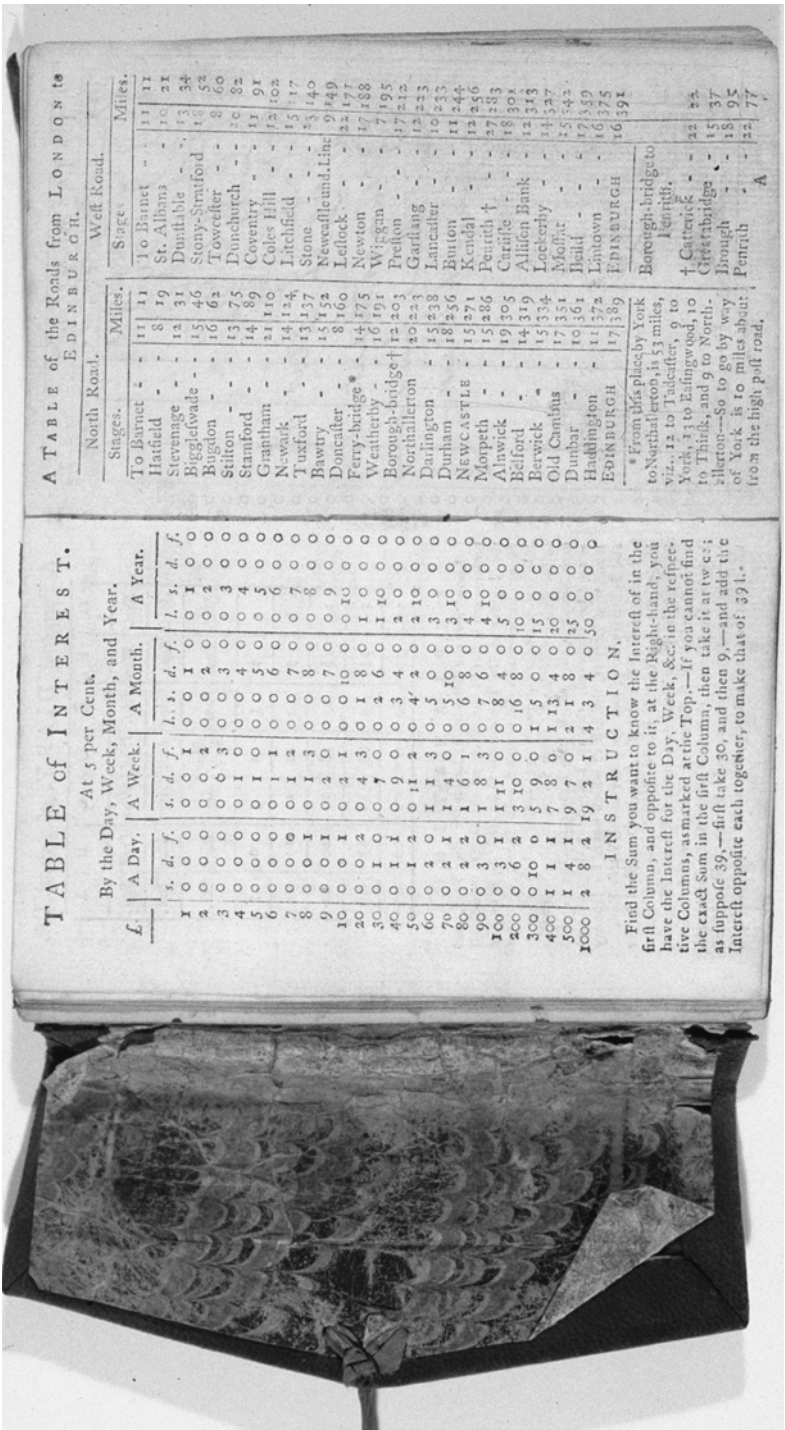 TABLE of INTEREST.
At 5 per Cent.
By the Day, Week, Month, and Year.
£. A Day. A Week. A Month. A Year.
s. d. f. s. d. f. l. s. d. f. l. s. d. f.
1 0 0 0 0 0 1 0 0 1 0 0 1 0 0
2 0 0 0 0 0 2 0 0 2 0 0 2 0 0
3 0 0 0 0 0 3 0 0 3 0 0 3 0 0
4 0 0 0 0 1 0 0 0 4 0 0 4 0 0
5 0 0 0 0 1 0 0 0 5 0 0 5 0 0
6 0 0 0 0 1 1 0 0 6 0 0 6 0 0
7 0 0 0 0 1 2 0 0 7 0 0 7 0 0
8 0 0 1 0 1 3 0 0 8 0 0 8 0 0
9 0 0 0 0 2 0 0 0 7 0 0 9 0 0
10 0 0 1 0 2 1 0 0 10 0 0 10 0 0
20 0 0 2 0 4 3 0 1 8 0 1 0 0 0
30 0 1 0 0 7 0 0 2 6 0 1 10 0 0
40 0 1 1 0 9 0 0 3 4 0 2 0 0 0
50 0 1 2 0 11 2 0 4 2 0 2 10 0 0
60 0 2 0 1 1 3 0 5 0 0 3 0 0 0
70 0 2 1 1 4 0 0 5 10 0 3 10 0 0
80 0 2 2 1 6 1 0 6 8 0 4 0 0 0
90 0 3 0 1 8 3 0 7 6 0 4 10 0 0
100 0 3 1 1 11 0 0 8 4 0 5 0 0 0
200 0 6 2 3 10 0 0 16 8 0 10 0 0 0
300 0 10 0 5 9 0 1 5 0 0 15 0 0 0
400 1 1 1 7 8 0 1 13 4 0 20 0 0 0
500 1 4 1 9 7 0 2 1 8 0 25 0 0 0
1000 2 8 2 19 2 1 4 3 4 0 50 0 0 0
INSTRUCTION.
Find the Sum you want to know the Intereſt of in the
firſt Column, and oppoſite to it, at the Right-hand, you
have the Intereſt for the Day, Week, &c. in the reſpec-
tive Columns, as marked at the Top.—If you cannot find
the exact Sum in the firſt Column, then take it at twice;
as ſuppoſe 39,—firſt take 30, and then 9,—and add the
Intereſt oppoſite each together, to make that of 391.
A TABLE of the Roads from LONDON to
EDINBURGH.
North Road.
Stages. Miles.
To Barnet - - 11 11
Hatfield - - 8 19
Stevenage - - 12 31
Biggleſwade - - 15 46
Bugdon - - 16 62
Stilton - - 13 75
Stamford - - 14 89
Grantham - - 21 110
Newark - - 14 124
Tuxford - - 13 137
Bawtry - - 15 152
Doncaſter - - 8 160
Ferry-bridge * 14 175
Weatherby - - 16 191
Borough-bridge † 12 203
Northallerton 20 223
Darlington - 15 238
Durham - - 18 256
NEWCASTLE - 15 271
Morpeth - - 15 286
Alnwick - - 19 305
Belford - - 14 319
Berwick - - 15 334
Old Cambus - 17 351
Dunbar - - 10 361
Haddington - 11 372
EDINBURGH 17 389
* From this place by York
to Northallerton, is 53 miles,
viz. 12 to Tadcaſter, 9 to
York, 13 to Eaſingwood, 10
to Thirſk, and 9 to North-
allerton---So to go by way
of York is 10 miles about
from the high poſt road.
Weſt Road.
Stages Miles.
To Barnet - - 11 11
St. Albans - 10 21
Dunſtable - - 13 34
Stony-Stratford 18 52
Towceſter - 8 60
Dunchurch - - 20 82
Coventry - - 11 91
Coles Hill - - 12 102
Litchfield - - 15 117
Stone - - 23 140
Newcaſtle und. Line 9 149
Leſtock - - 22 171
Newton - - 17 188
Wiggan - - 7 195
Preſton - - 17 212
Garſtang - - 12 223
Lancaſter - - 10 233
Burton - - 11 244
Kendal - - 12 256
Penrith † - 27 283
Carliſle - - 18 301
Alliſon Bank 12 313
Lockerby - - 14 327
Moffat - - 15 342
Beild - - 17 359
Lintown - - 16 375
EDINBURGH 16 391
Borough-bridge to
Penrith.
† Catterick - 22 22
Gretabridge - 15 37
Brough - - 18 95
Penrith - - 22 77
A